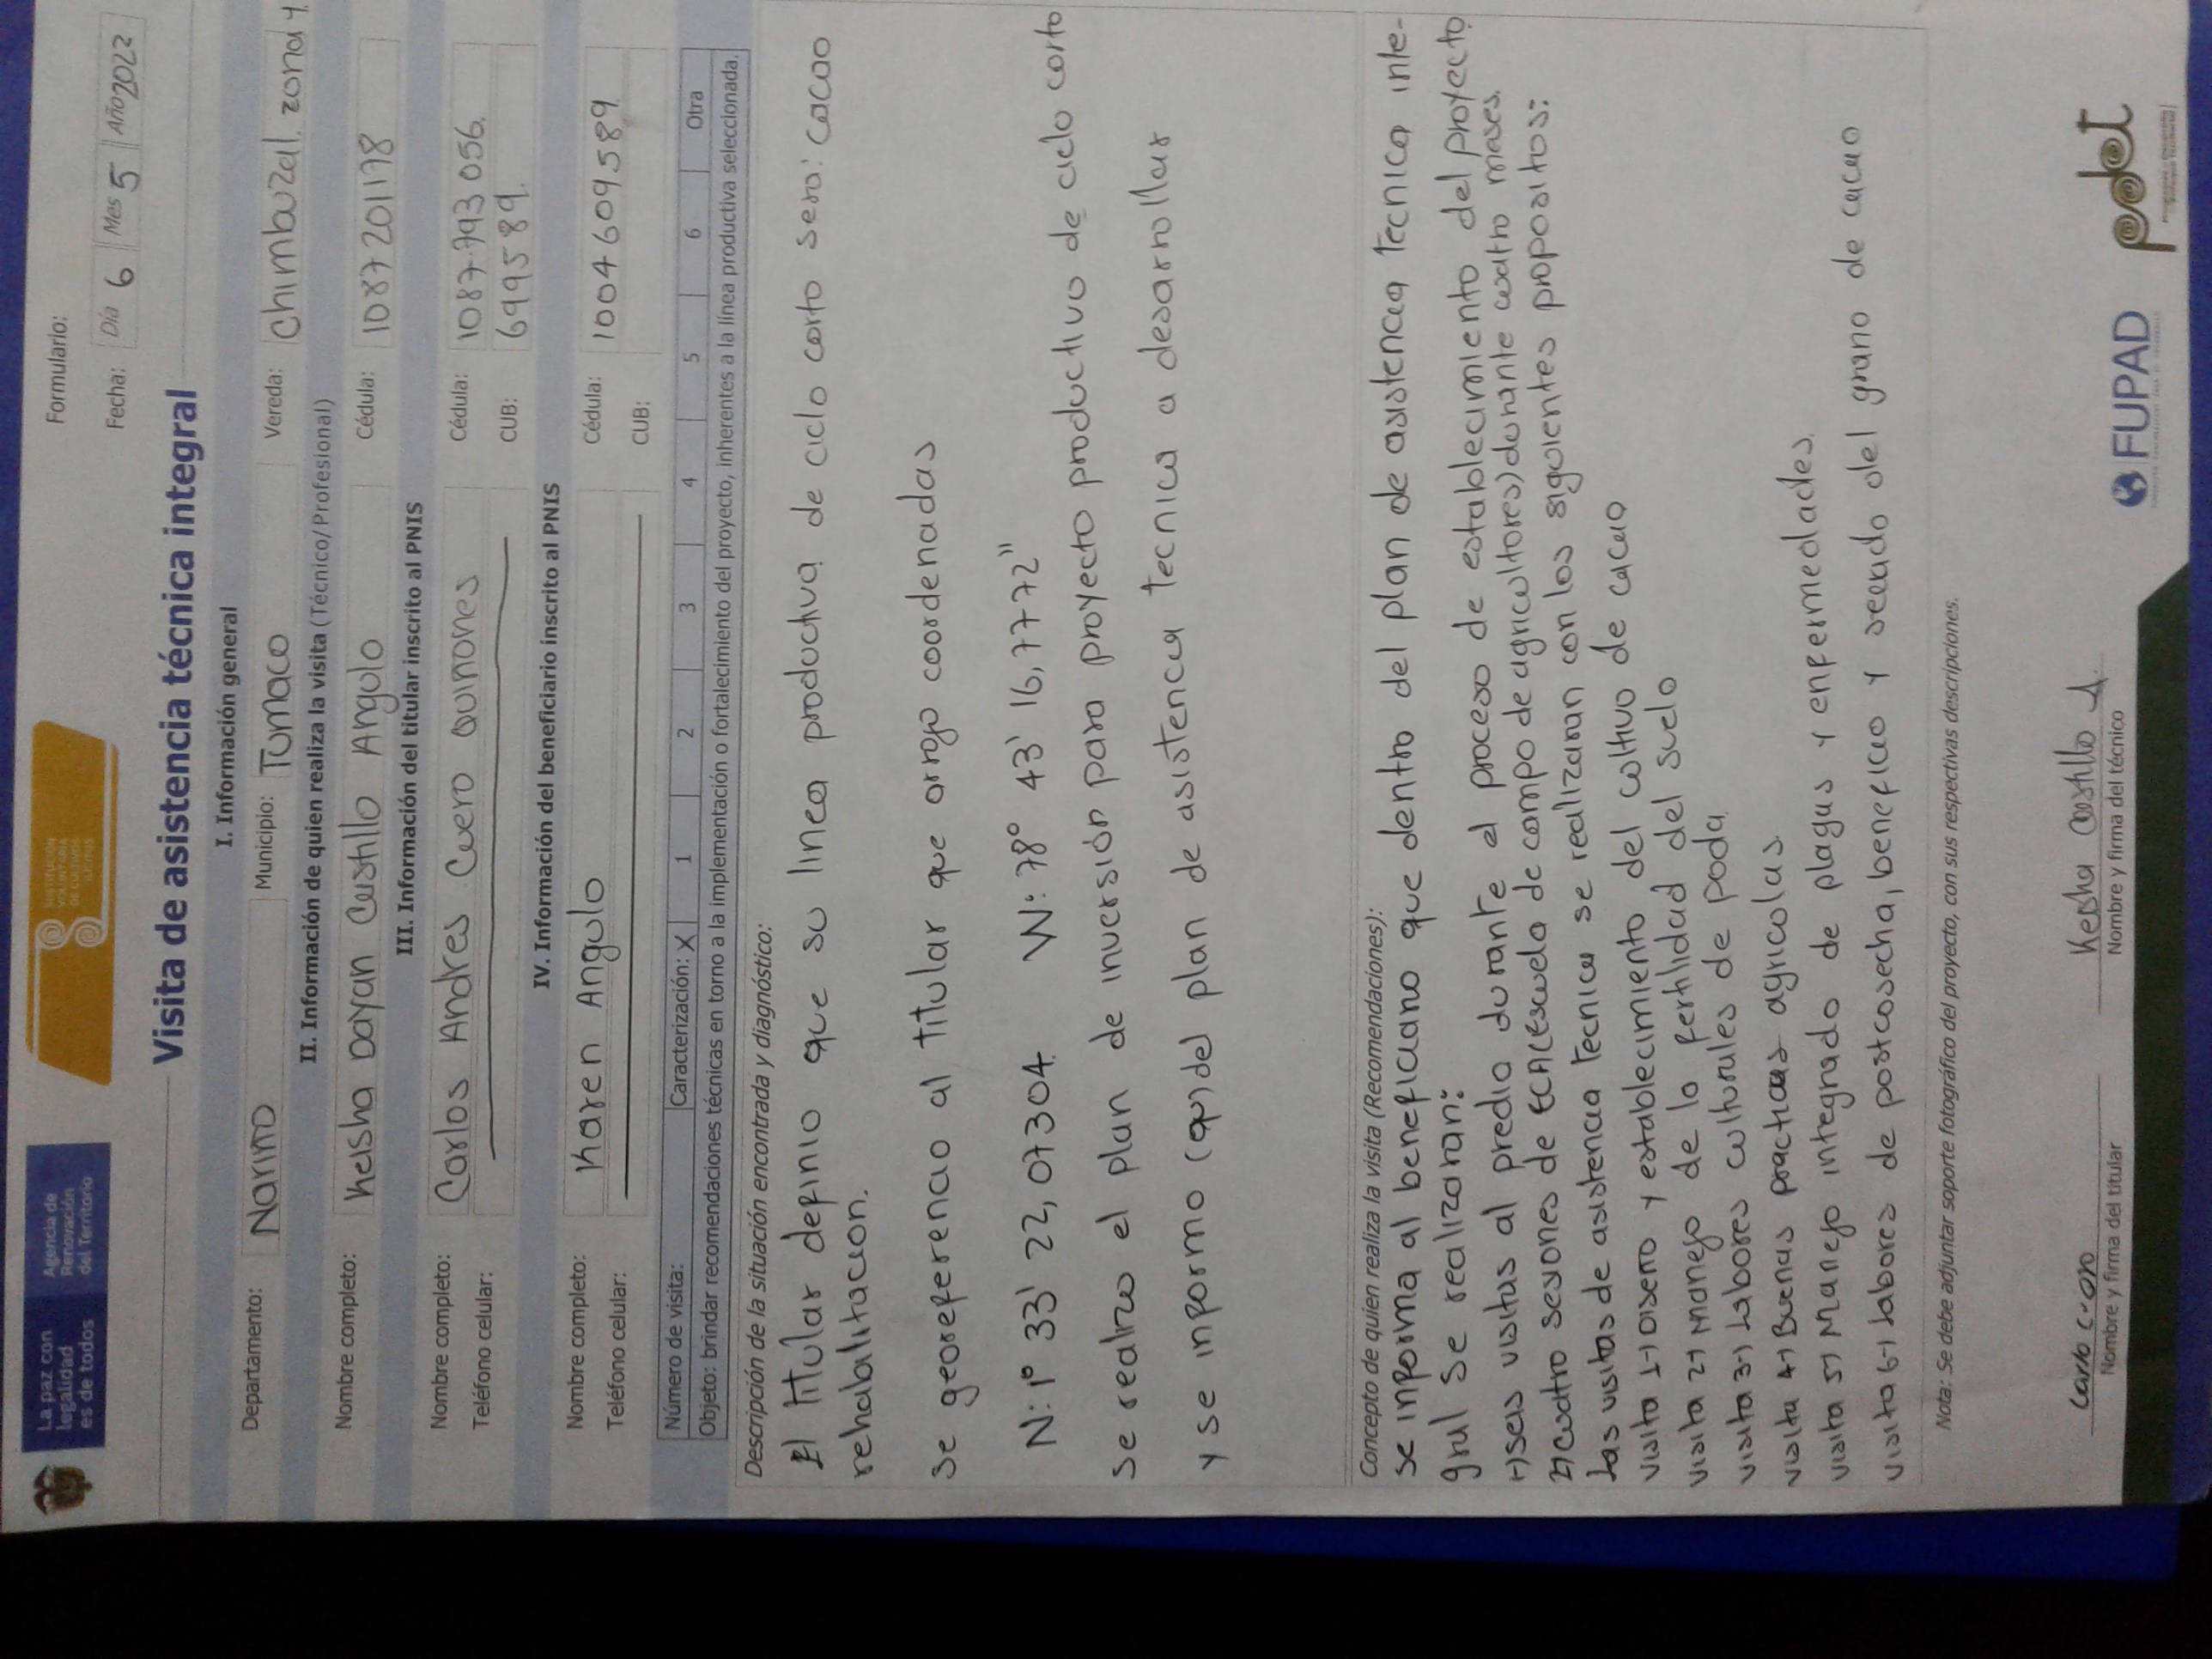 La paz con
legalidad
es de todos
Agencia de
Renovación
del Territorio
SUSTITUCIÓN
VOLUNTARIA
DE CULTIVOS
ILÍCITOS
Formulario:
Fecha: Día 6 Mes 5 Año 2022
Visita de asistencia técnica integral
I. Información general
Departamento: Nariño Municipio: Tumaco Vereda: Chimbuzal. zona 4.
II. Información de quien realiza la visita (Técnico/Profesional)
Nombre completo: Keisha Dayan Castillo Angulo Cédula: 1087201178
III. Información del titular inscrito al PNIS
Nombre completo: Carlos Andres Cuero Quiñones Cédula: 1087.793 056.
Teléfono celular: CUB: 6995589.
IV. Información del beneficiario inscrito al PNIS
Nombre completo: Karen Angulo Cédula: 1004609589.
Teléfono celular: CUB:
Número de visita: Caracterización: X 1 2 3 4 5 6 Otra
Objeto: brindar recomendaciones técnicas en torno a la implementación o fortalecimiento del proyecto, inherentes a la línea productiva seleccionada.
Descripción de la situación encontrada y diagnóstico:
El titular definio que su linea productiva de ciclo corto sera: cacao
rehabilitacion.
se georeferencio al titular que arrojo coordenadas
N: 1° 33' 22,07304 W: 78° 43' 16,7772"
se realizo el plan de inversión para proyecto productivo de ciclo corto
y se informo del plan de asistencia tecnica a desarrollar
Concepto de quien realiza la visita (Recomendaciones):
se informa al beneficiario que dentro del plan de asistencia tecnica inte-
gral se realizaran:
1-) seis visitas al predio durante el proceso de establecimiento del proyecto
2) cuatro sesiones de ECA (escuela de campo de agricultores) durante cuatro meses.
Las visitas de asistencia tecnica se realizaran con los siguientes propositos:
visita 1-) Diseño y establecimiento del cultivo de cacao
visita 2-) Manejo de la fertilidad del suelo
visita 3-) Labores culturales de poda
visita 4-) Buenas practicas agricolas.
visita 5-) Manejo integrado de plagas y enfermedades.
visita 6-) labores de postcosecha, beneficio y secado del grano de cacao
Nota: Se debe adjuntar soporte fotográfico del proyecto, con sus respectivas descripciones.
Keisha Castillo A.
Nombre y firma del titular
Nombre y firma del técnico
FUPAD
pdet